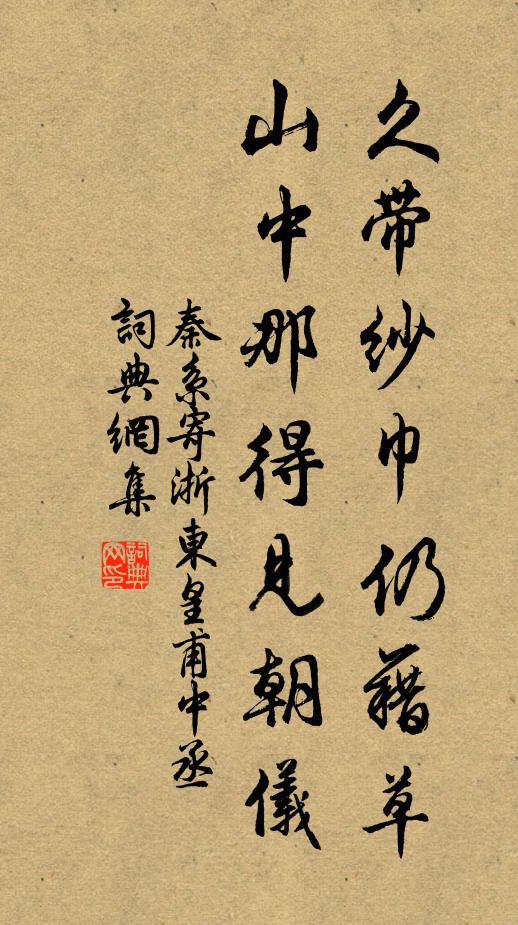 久帶紗巾仍藉草
山中那得見朝儀
秦系寄浙東皇甫中丞
詞典網集
詞典網印